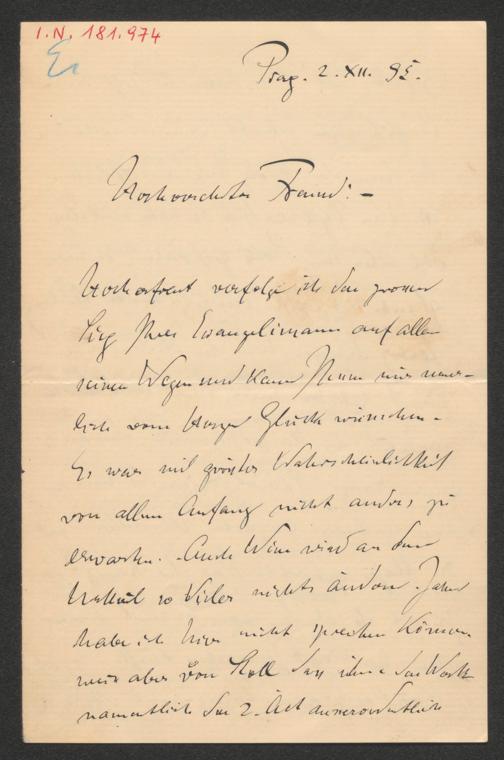 I.N. 181.974
Prag. 2. XII. 95.
Hochverehrter Freund! –
Hocherfreut verfolge ich den grossen
Sieg Ihres Evangelimann auf allen
seinen Wegen und kann Ihnen nur neuer-
lich vom Herzen Glück wünschen. –
Es war mit grösster Wahrscheinlichkeit
von allem Anfang nicht anders zu
erwarten. Auch Wien wird an dem
Urtheil so Vieler nichts ändern. Jahn
habe ich hier nicht sprechen können
weiss aber von Stoll dass ihm das Werk
namentlich der 2. Act ausserordentlich